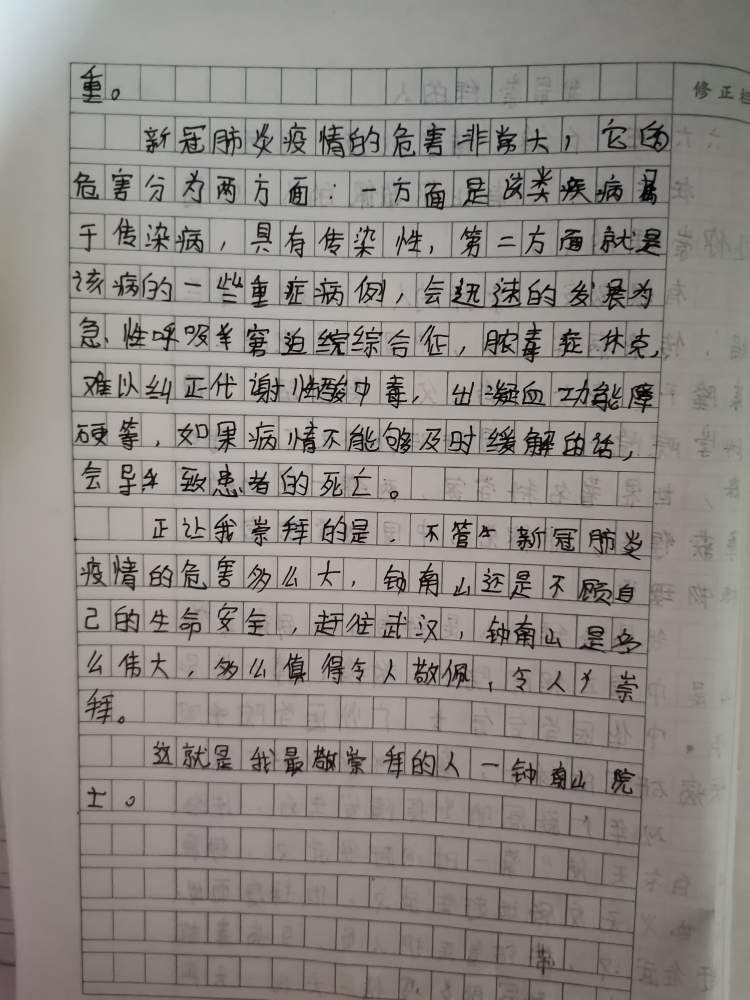 重。
修正栏
新冠肺炎疫情的危害非常大，它的
危害分为两方面：一方面是这类疾病属
于传染病，具有传染性，第二方面就是
该病的一些重症病例，会迅速的发展为
急性呼吸窘迫综合征，脓毒症休克，
难以纠正代谢性酸中毒，出凝血功能障
硬等，如果病情不能够及时缓解的话，
会导致患者的死亡。
正让我崇拜的是，不管新冠肺炎
疫情的危害多么大，钟南山还是不顾自
己的生命安全，赶往武汉，钟南山是多
么伟大，多么值得令人敬佩，令人崇
拜。
这就是我最敬崇拜的人一钟南山院
士。